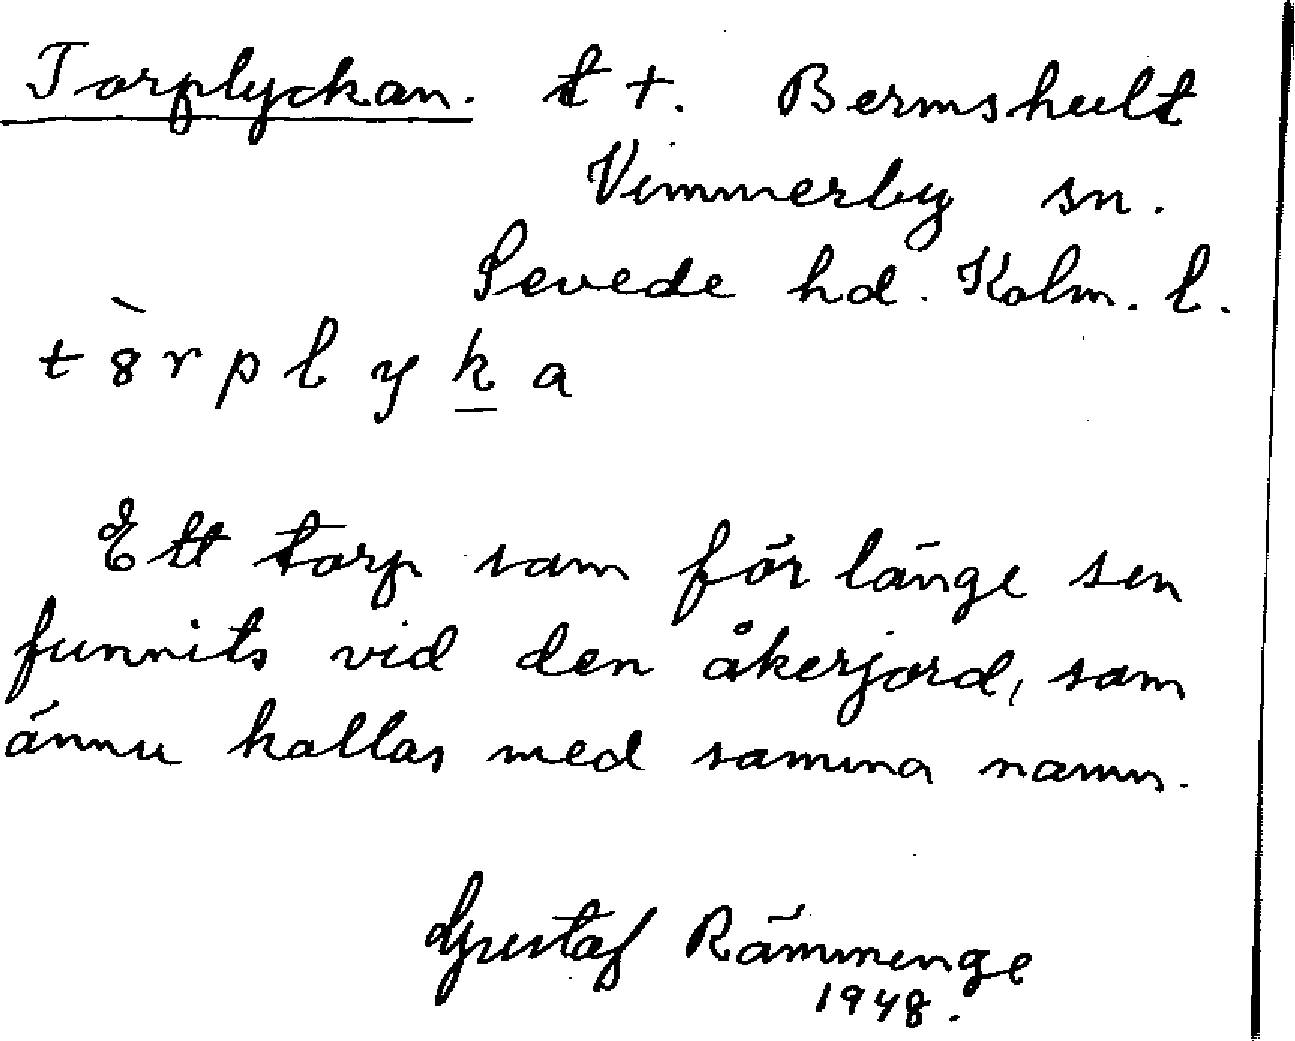 Torplyckan. t t. Bermshult
Vimmerby sn.
Sevede hd. Kalm. l.
t 8̀ r p l y k a
Ett torp som för länge sen
funnits vid den åkerjord, som
ännu kallas med samma namn.
Gustaf Rämmenge
1948.